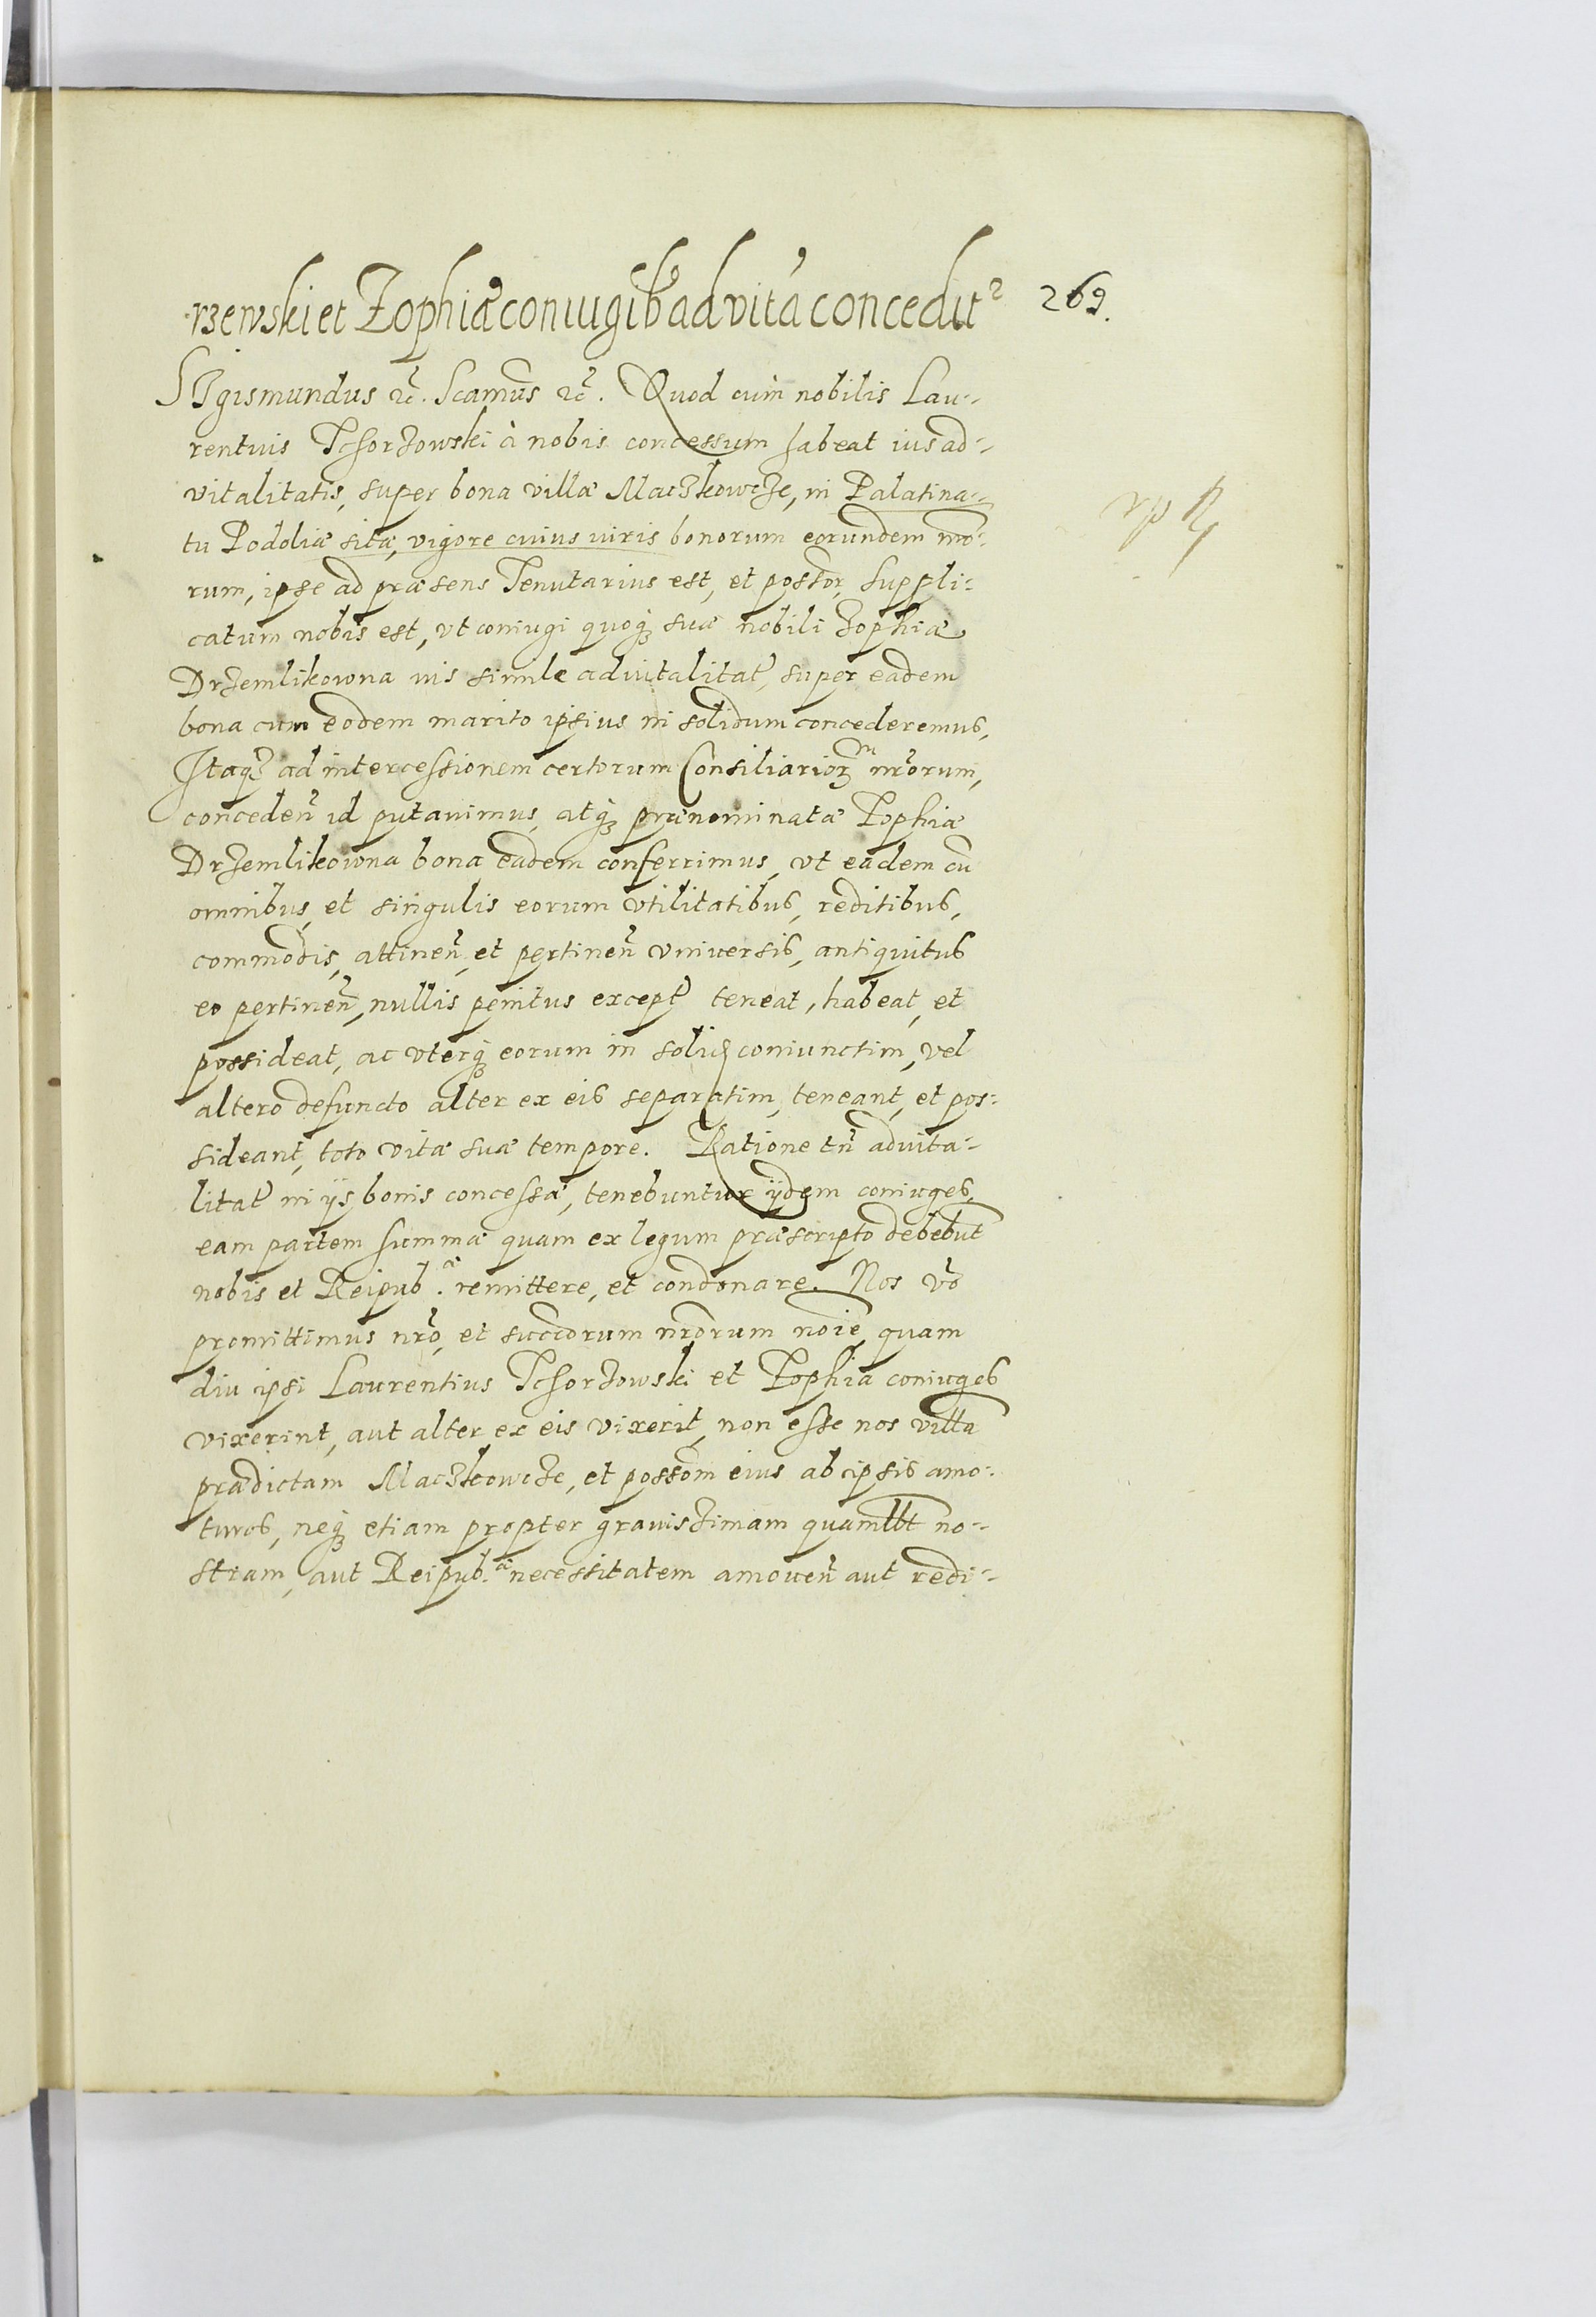 rzewski et Zophiæ coniugib9 ad vitā concedit² 269.
SIgismundus ꝛc̃. Scamũs ꝛc̃. Quod cùm nobilis Lau-
rentius Tchorzowski à nobis concessum habeat ius ad-
vitalitatis, super bona villæ Maczkowcze, in Palatina-
tu Podoliæ sita, vigore cuius iuris bonorum eorundem nr̃o-
rum, ipse ad præsens Tenutarius est, et possor̃, suppli-
catum nobis est, vt coniugi quoq; suæ nobili Zophiæ
Drzemlikowna ius simile aduitalitat̃, super eadem
bona cum eodem marito ipsius in solidum concederemus,
Itaq; ad intercessionem certorum Consiliarioꝝ nr̃orum,
conceden̄ id putauimus, atq; prænominatæ Zophiæ
Drzemlikowna bona eadem conferrimus, vt eadem cū
omnibus, et singulis eorum vtilitatibus, reditibus,
commodis, attinen̄, et pertinen̄ vniuersis, antiquitus
eo pertinen̄, nullis penitus except̃ teneat, habeat, et
possideat, ac vterq; eorum in solid coniunctim, vel
altero defuncto alter ex eis separatim, teneant, et pos-
sideant, toto vitæ suæ tempore. Ratione tñ aduita-
litat̃ in ijs bonis concessæ, tenebuntur ijdem coniuges,
eam partem summæ quam ex legum præscripto debebūt
nobis et Reipub.æ remittere, et condonare. Nos vr̃o
promittimus nr̃o, et succorum nr̃orum noīe, quam
diu ipsi Laurentius Tchorzowski et Zophia coniuges
vixerint, aut alter ex eis vixerit, non esse nos villā
prædictam Maczkowcze, et possom̃ eius ab ipsis amo-
turos, neq; etiam propter grauissimam quamlbt no-
stram, aut Reipub.æ necessitatem amouen̄ aut redi-